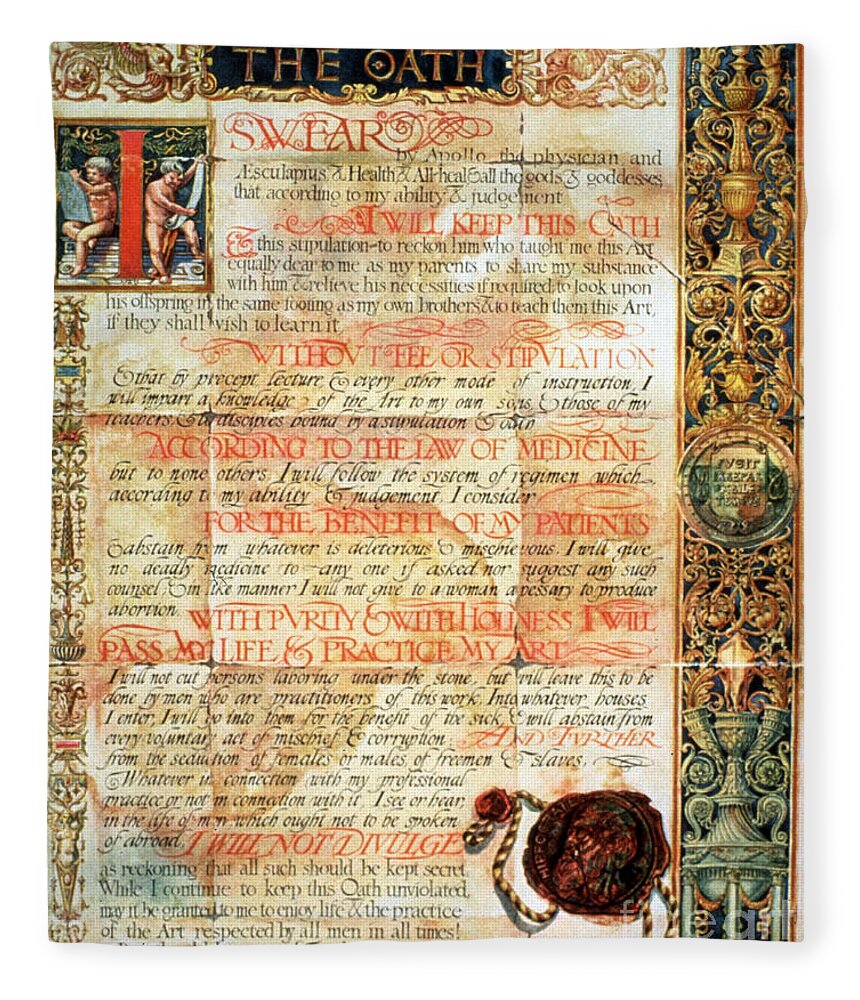 THE OATH
I SWEAR
by Apollo the physician and
Æsculapius & Health & All-heal & all the gods & goddesses
that according to my ability & judgement
I WILL KEEP THIS OATH
& this stipulation – to reckon him who taught me this Art
equally dear to me as my parents to share my substance
with him & relieve his necessities if required; to look upon
his offspring in the same footing as my own brothers, & to teach them this Art,
if they shall wish to learn it
WITHOVT FEE OR STIPVLATION
& that by precept lecture & every other mode of instruction, I
will impart a knowledge of the Art to my own sons, & those of my
teachers, & to disciples bound by a stipulation & oath
ACCORDING TO THE LAW OF MEDICINE
but to none others. I will follow the system of regimen which
according to my ability & judgement I consider
FOR THE BENEFIT OF MY PATIENTS
& abstain from whatever is deleterious & mischievous. I will give
no deadly medicine to any one if asked nor suggest any such
counsel; & in like manner I will not give to a woman a pessary to produce
abortion
WITH PVRITY & WITH HOLINESS I WILL
PASS MY LIFE & PRACTICE MY ART
I will not cut persons laboring under the stone, but will leave this to be
done by men who are practitioners of this work. Into whatever houses
I enter, I will go into them for the benefit of the sick, & will abstain from
every voluntary act of mischief & corruption AND FVRTHER
from the seduction of females or males of freemen & slaves.
Whatever in connection with my professional
practice or not in connection with it I see or hear
in the life of men which ought not to be spoken
of abroad I WILL NOT DIVULGE
as reckoning that all such should be kept secret
While I continue to keep this Oath unviolated,
may it be granted to me to enjoy life & the practice
of the Art respected by all men in all times!
fine art